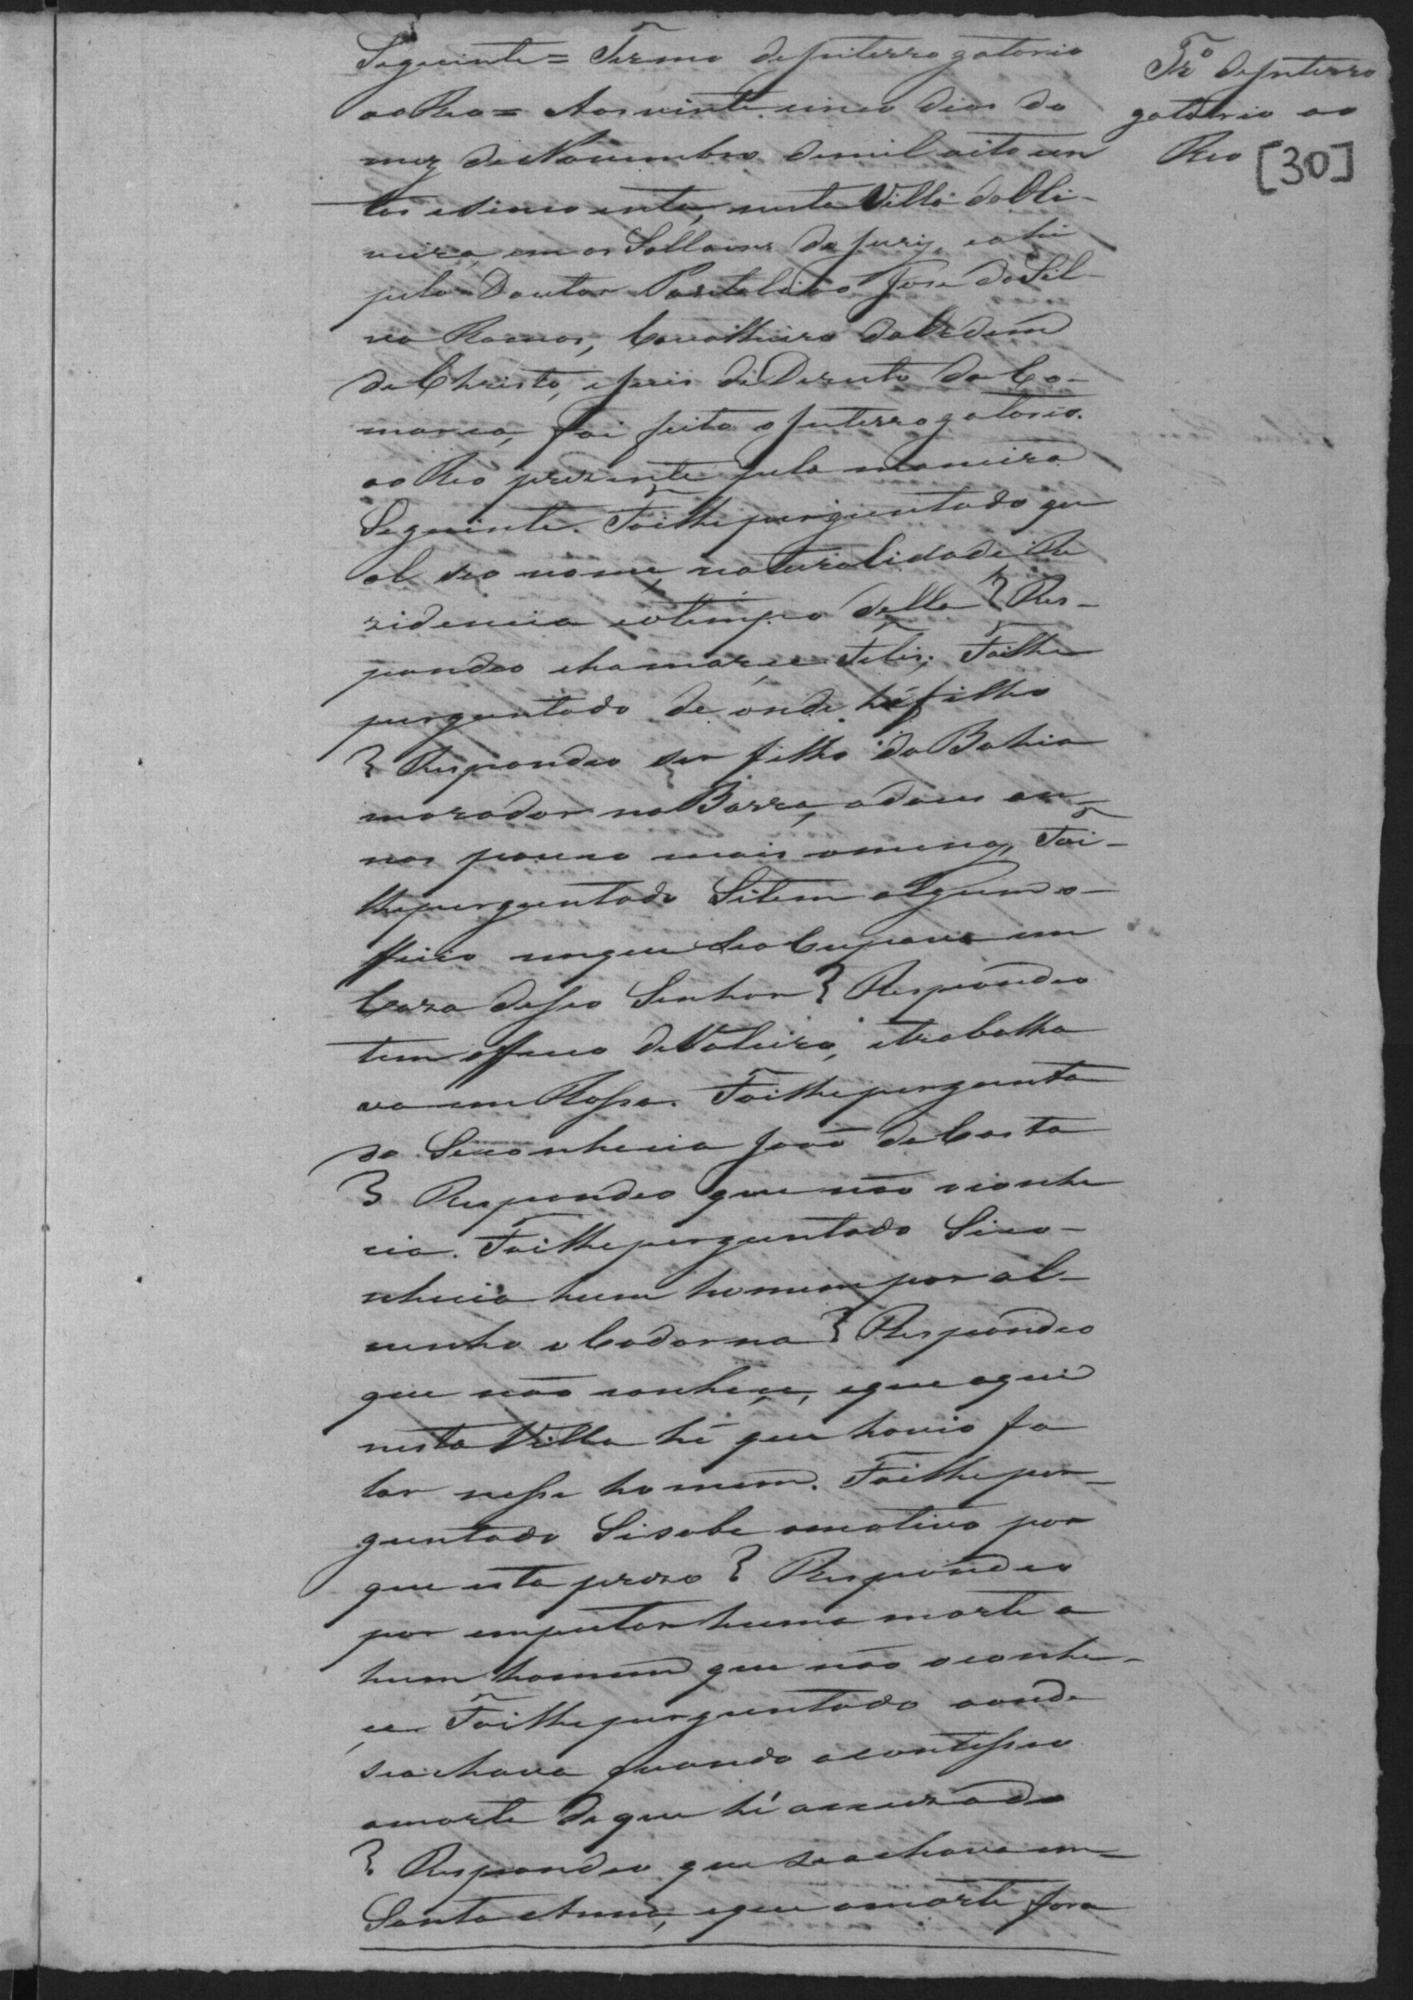 Seguinte = Termo de interrogatorio
ao Reo = Aos vinte cinco dias do
mez de Novembro de mil oito cen
tos e sincoenta, nesta Villa da Oli-
veira, em os Sallaons do jury, e ahi
pelo Doutor Pantalião José da Sil-
va Ramos, Cavalheiro da Ordem
de Christo, e juis de Dereito da Co-
marca, foi feito o interrogatorio
ao Reo prezente pela maneira
Seguinte. Foilhe perguntado qu
al seo nome, naturalidade Re
zidencia e o tempo della? Res-
pondeo chamar-se Felis; Foilhe
perguntado de onde hé filho
? Respondeo ser filho da Bahia
morador na Barra, a dous an-
nos pouco mais ou menos, Foi-
lhe perguntado Se tem algum o-
fficio em que se o Cupava em
Caza de seo Senhor? Respondeo
tem officio de Valeiro, e trabalha
va em Rossa. Foilhe pergunta
do Se conhecia João da Costa
? Respondeo que não o conhe
cia. Foilhe perguntado Se co-
nhecia hum homem por al-
cunha o Codorna? Respondeo
que não conhece, e que aqui
nesta Villa hé que houvio fa
lar nesse homem. Foilhe per-
guntado Se sabe o motivo por
que esta prezo? Respondeo
por emputar huma morte a
hum homem que não o conhe-
ce. Foilhe perguntado aonde
se achava quando acontesseo
a morte de que hé accuzado
? Respondeo que se achava em
Santa Anna, e que a morte fora
Tr.º de interro
gatorio ao
Reo [30]